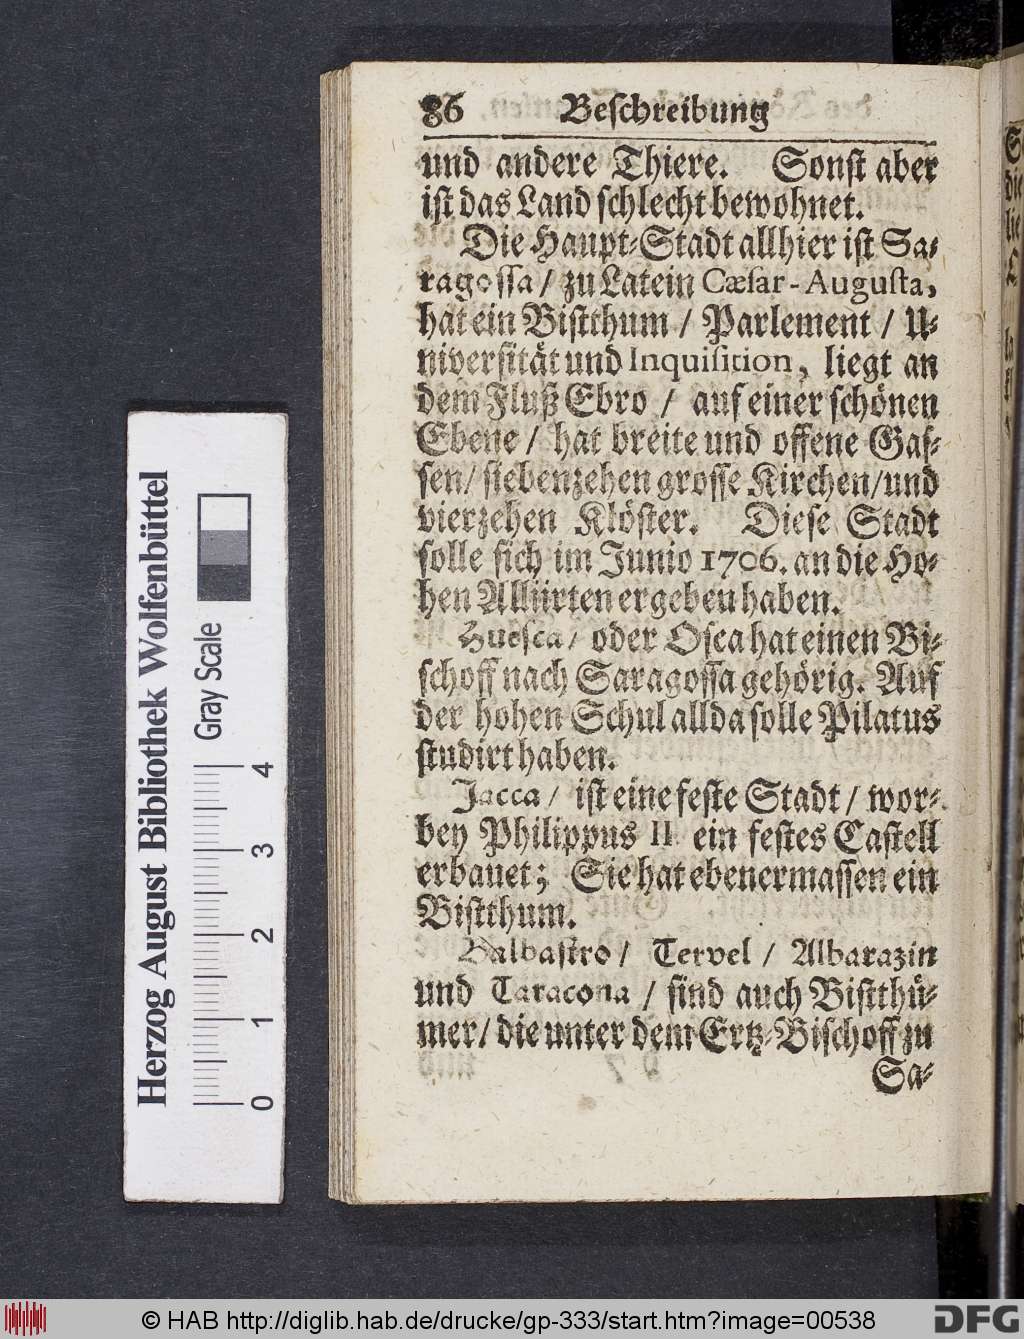 86 Beschreibung
und andere Thiere. Sonst aber
ist das Land schlecht bewohnet.
Die Haupt-Stadt allhier ist Sa-
ragossa / zu Latein Cæsar-Augusta,
hat ein Bistthum / Parlement / U-
niversität und Inquisition, liegt an
dem Fluß Ebro / auf einer schönen
Ebene / hat breite und offene Gas-
sen / siebenzehen grosse Kirchen / und
vierzehen Klöster. Diese Stadt
solle sich im Junio 1706. an die Ho-
hen Alliirten ergeben haben.
Huesca / oder Osca hat einen Bi-
schoff nach Saragossa gehörig. Auf
der hohen Schul allda solle Pilatus
studirt haben.
Jacca / ist eine feste Stadt / wor-
bey Philippus II ein festes Castell
erbauet; Sie hat ebenermassen ein
Bistthum.
Balbastro / Tervel / Albarazin
und Taracona / sind auch Bistthü-
mer / die unter dem Ertz-Bischoff zu
Sa-
Herzog August Bibliothek Wolfenbüttel
Gray Scale
0 1 2 3 4
© HAB http://diglib.hab.de/drucke/gp-333/start.htm?image=00538
DFG